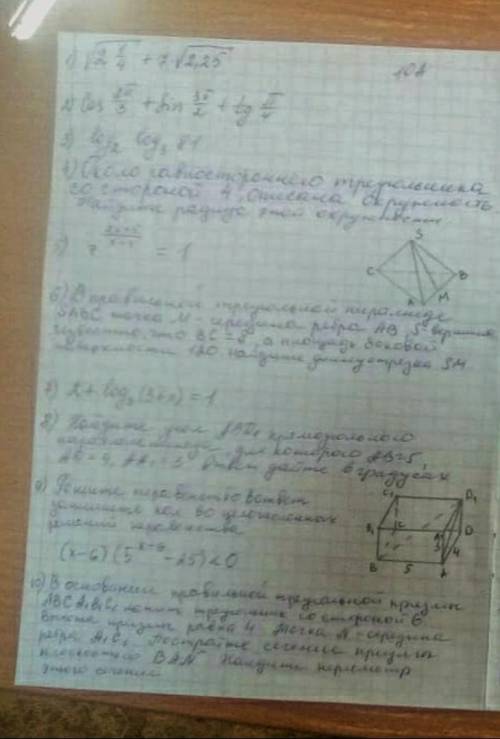 1) √2 1/4 + 7√2,25
10А
2) cos 2π/3 + sin 3π/2 + tg π/4
3) log₂ log₃ 81
4) Около равностороннего треугольника
со стороной 4, описана окружность
Найдите радиус этой окружности
5) = 1
S
C
B
A
M
6) В правильной треугольной пирамиде
SABC точка M - середина ребра AB, S - вершина
известно, что BC = , а площадь боковой
поверхности 120 найдите длину отрезка SM
7) 2 + log₃ = 1
8) Найдите угол прямоугольного
параллелепипеда для которого AB=5
AD=4, AA₁=3 Ответ дайте в градусах
9) Решите неравенство в ответ
запишите кол-во целочисленных
решений неравенства
(x-6)(5ˣ⁻⁶ - 25) < 0
C₁
D₁
B₁
C
A₁
D
3
4
B
5
A
10) В основании правильной треугольной призмы
ABCA₁B₁C₁ лежит треугольник со стороной 6
высота призмы равна 4 Точка N - середина
ребра A₁C₁ Постройте сечение призмы
плоскостью BAN Найдите периметр
этого сечения